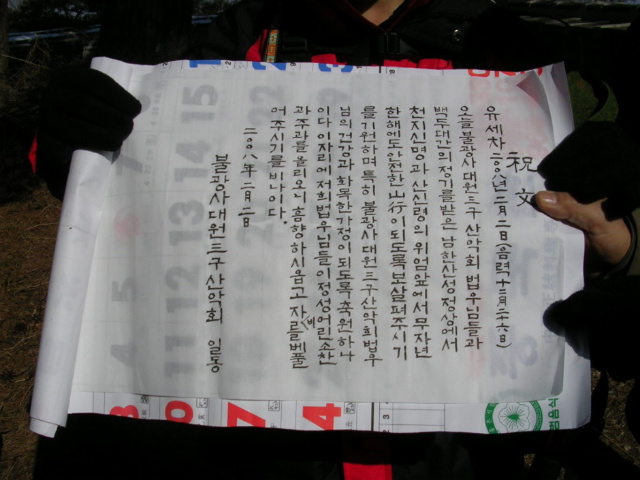 祝文
유세차 二00八년 二月 二日 (음력 十二月 二六日)
오늘 불광사 대원 三구 산악회 법우님들과
백두대간의 정기를 받은 남한산성 정상에서
천지신명과 산신령의 위엄앞에서 무자년
한해에도 안전한 山行이 되도록 보살펴주시기
를 기원하며 특히 불광사 대원 三구 산악회 법우
님의 건강과 화목한 가정이 되도록 축원하나
이다 이자리에 저희 법우님들이 정성어린 소찬
과 주과를 올리오니 흠향하시옵고 자비를 베풀
어 주시기를 비나이다.
二00八年 二月 二日
불광사 대원 三구 산악회 일동